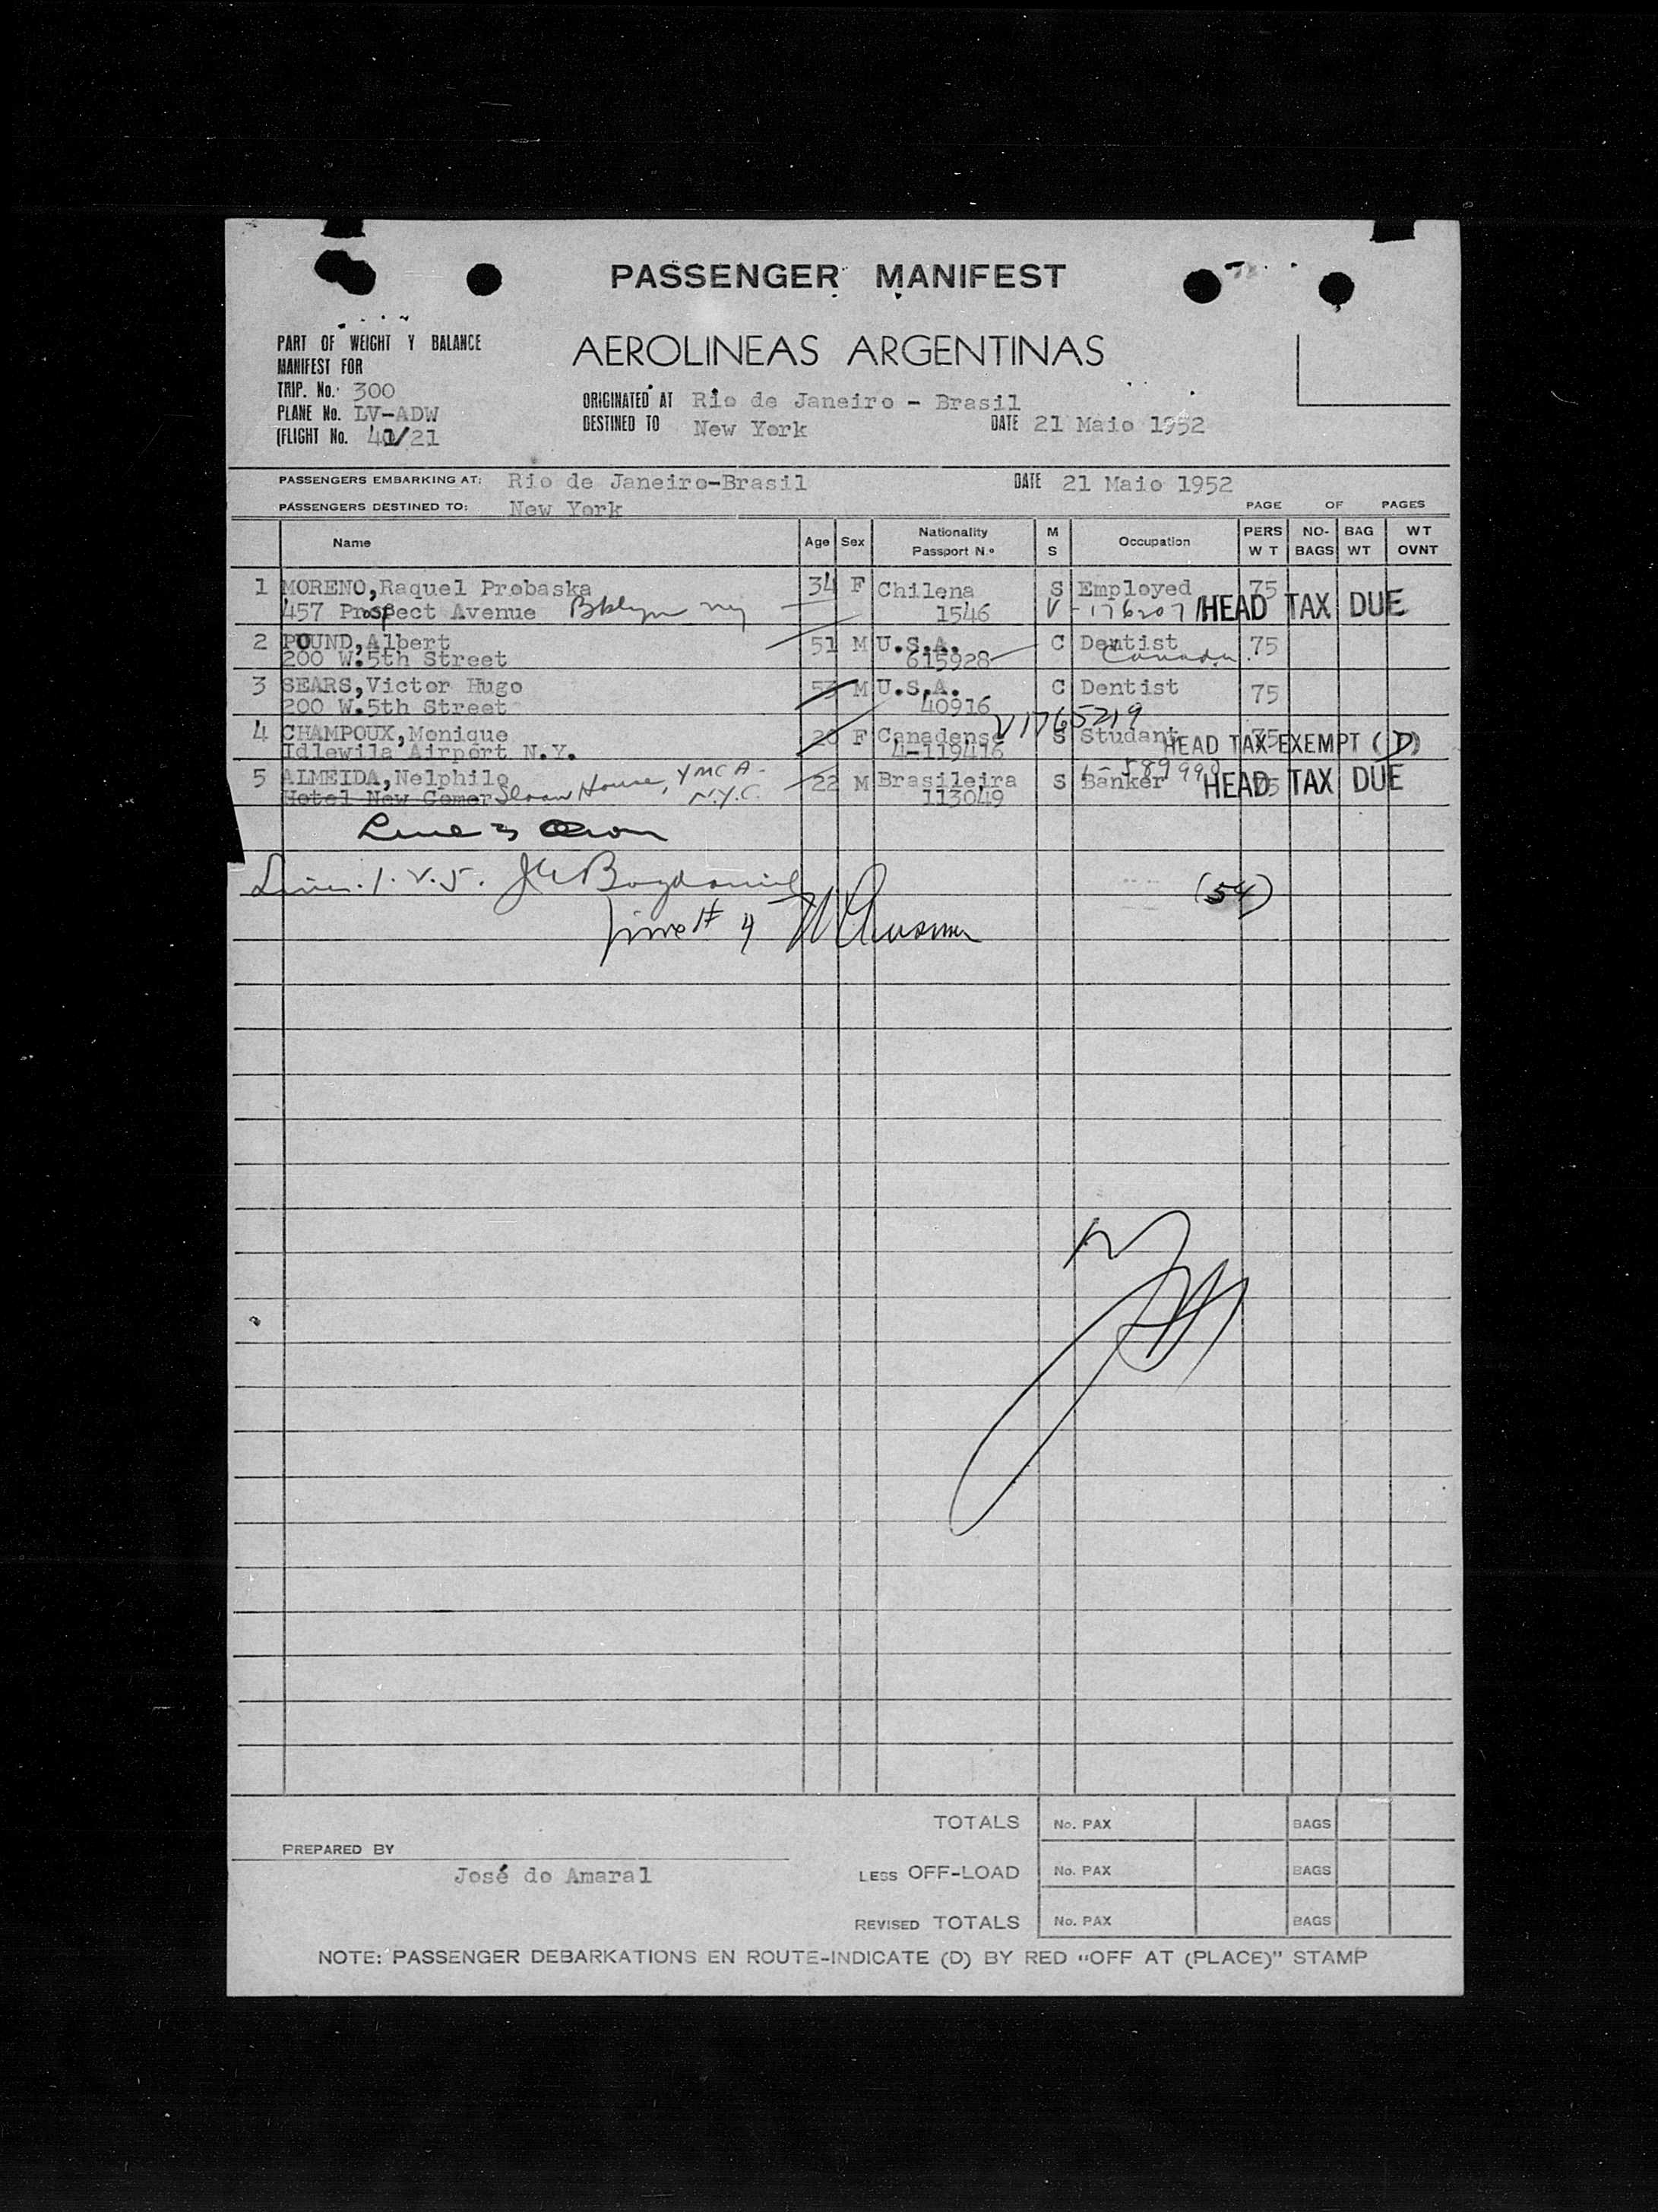 PASSENGER MANIFEST
PART OF WEIGHT Y BALANCE
MANIFEST FOR
TRIP. No. 300
PLANE No. LV-ADW
(FLIGHT No. 41/21
AEROLINEAS ARGENTINAS
ORIGINATED AT Rio de Janeiro - Brasil
DESTINED TO New York DATE 21 Maio 1952
PASSENGERS EMBARKING AT: Rio de Janeiro-Brasil DATE 21 Maio 1952
PASSENGERS DESTINED TO: New York PAGE OF PAGES
Name Age Sex Nationality Passport N.º M S Occupation PERS W T NO- BAGS BAG WT WT OVNT
1 MORENO, Raquel Probaska 34 F Chilena S Employed 75
457 Prospect Avenue Bklyn ny 1546 V-176207 HEAD TAX DUE
2 POUND, Albert 51 M U.S.A. C Dentist 75
200 W.5th Street 615928 Canada
3 SEARS, Victor Hugo 53 M U.S.A. C Dentist 75
200 W.5th Street 40916
4 CHAMPOUX, Monique 20 F Canadense V1765219 S Studant 75
Idlewila Airport N.Y. 4-119416 HEAD TAX EXEMPT (D)
5 ALMEIDA, Nelphilo 22 M Brasileira S Banker 75 HEAD TAX DUE
Hotel New Comer Sloan House, YMCA - N.Y.C. 113049
Line 3
1.V.5. (54)
Line # 4
TOTALS No. PAX BAGS
PREPARED BY
José do Amaral
LESS OFF-LOAD No. PAX BAGS
REVISED TOTALS No. PAX BAGS
NOTE: PASSENGER DEBARKATIONS EN ROUTE-INDICATE (D) BY RED "OFF AT (PLACE)" STAMP